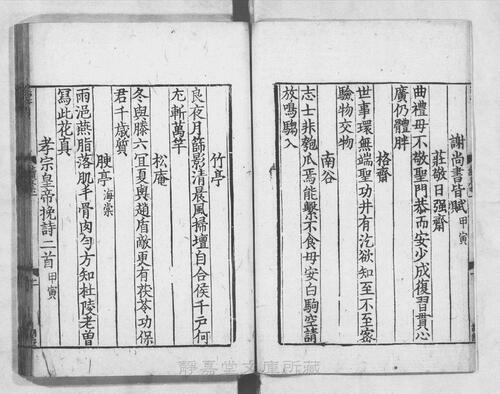 謝尚書皆賦 甲寅
莊敬日强齋
曲禮毋不敬聖門恭而安少成復習貫心
廣仍體胖
格齋
世事環無端聖功井有汔欲知至不至密
驗物交物
南谷
志士非匏瓜焉能繫不食毋安白駒空請
放鳴騶入
竹亭
良夜月篩影清晨風掃壇自合侯千戸何
尤斬萬竿
松庵
冬與滕六冝夏與趙盾敵更有茯苓功保
君千歳質
腴亭 海棠
雨浥燕脂落肌手骨肉勻方知杜陵老曽
冩此花真
孝宗皇帝挽詩二首 甲寅
靜嘉堂文庫所藏